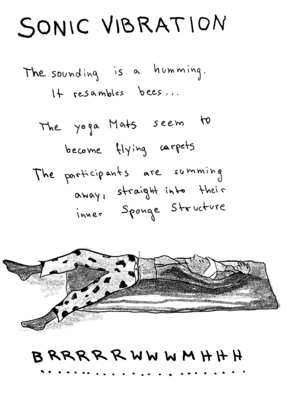 SONIC VIBRATION
The sounding is a humming.
It resambles bees...
The yoga Mats seem to
become flying carpets
The participants are summing
away, straight into their
inner Sponge Structure
BRRRRRWWWMHHH